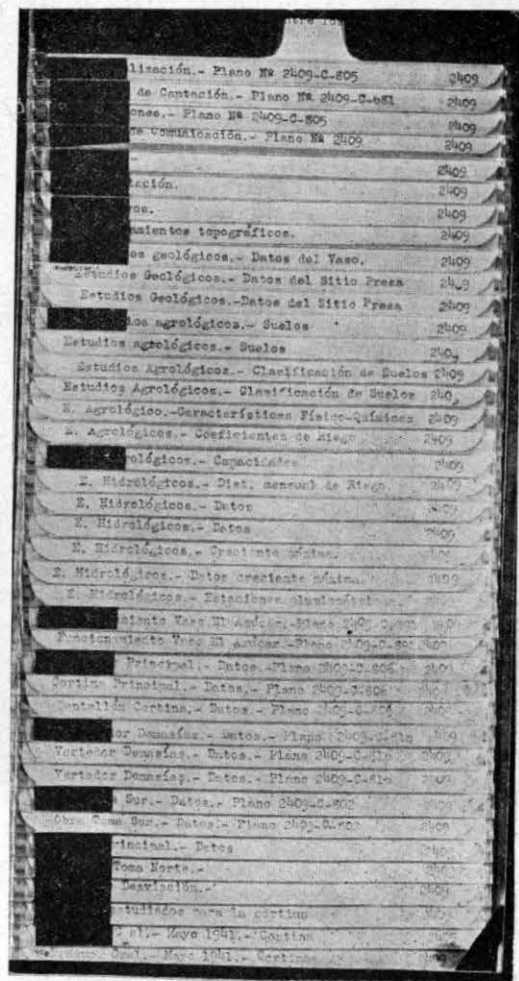 lización.- Plano Nº 2409-C-805 2409
de Captación.- Plano Nº 2409-C-681 2409
ones.- Plano Nº 2409-C-805 2409
Comunicación.- Plano Nº 2409 2409
2409
tación. 2409
vos. 2409
amientos topográficos. 2409
os geológicos.- Datos del Vaso. 2409
Estudios Geológicos.- Datos del Sitio Presa 2409
Estudios Geológicos.-Datos del Sitio Presa 2409
dios agrológicos.- Suelos 2409
Estudios agrológicos.- Suelos 2409
Estudios Agrológicos.- Clasificación de Suelos 2409
Estudios Agrológicos.- Clasificación de Suelos 2409
E. Agrológico.-Características Físico-Químicas 2409
E. Agrológicos.- Coeficientes de Riego 2409
rológicos.- Capacidades 2409
E. Hidrológicos.- Dist. mensual de Riego. 2409
E. Hidrológicos.- Datos 2409
E. Hidrológicos.- Datos 2409
E. Hidrológicos.- Creciente máxima. 2409
E. Hidrológicos.- Datos creciente máxima 2409
E. Hidrológicos.- Estaciones 2409
miento Vaso El Azúcar.-Plano 2409
Funcionamiento Vaso El azúcar.-Plano 2409
Principal.- Datos.-Plano 2409-C-806 2409
Cortina Principal.- Datos.- Plano 2409-C-806 2409
Dentellón Cortina.- Datos.- Plano 2409-C-806 2409
or Demasías.- Datos.- Plano 2409-C-810 2409
Vertedor Demasías.- Datos.- Plano 2409-C-810 2409
Vertedor Demasías.- Datos.- Plano 2409-C-810 2409
Sur.- Datos.- Plano 2409-C-802 2409
Obra Toma Sur.- Datos.- Plano 2409-C-802 2409
rincipal.- Datos 2409
Toma Norte.- 2409
Desviación.- 2409
studiados para la cortina 2409
al.- Mayo 1941.- Cortina 2409
Gral.- Mayo 1941.- Cortina 2409